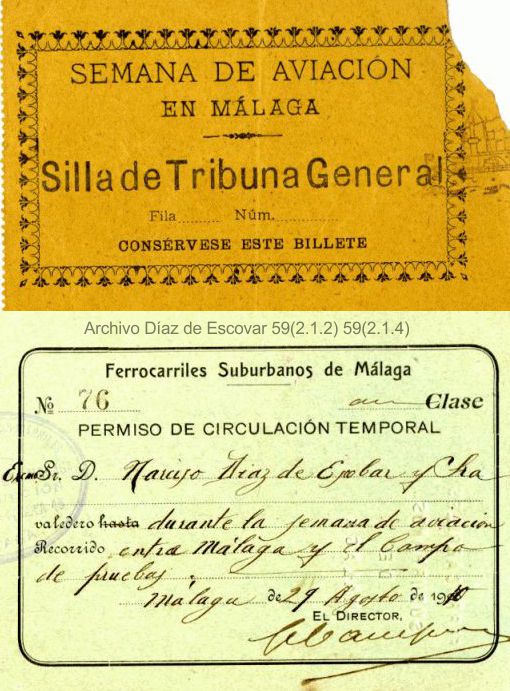 SEMANA DE AVIACIÓN
EN MÁLAGA
Silla de Tribuna General
Fila ........ Núm. ............
CONSÉRVESE ESTE BILLETE
Archivo Díaz de Escovar 59(2.1.2) 59(2.1.4)
Ferrocarriles Suburbanos de Málaga
No 76 Clase
PERMISO DE CIRCULACIÓN TEMPORAL
Excmo Sr. D. Narciso Diaz de Escobar y Cia
valedero hasta durante la semana de aviación
Recorrido entre Málaga y el Campo
de pruebas.
Málaga de 29 Agosto de 1910
EL DIRECTOR,